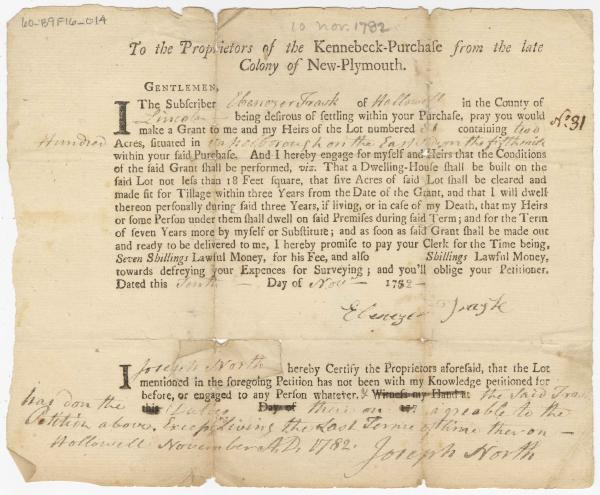 60-B9F16-014
10 Nov. 1782
To the Proprietors of the Kennebeck-Purchase from the late
Colony of New-Plymouth.
GENTLEMEN,
I The Subscriber Ebenezer Trask of Hallowell in the County of
Lincoln being desirous of settling within your Purchase, pray you would
make a Grant to me and my Heirs of the Lot numbered 31 containing two No. 31
Hundred Acres, situated in Vassalborough on the East on the fifth mile
within your said Purchase. And I hereby engage for myself and Heirs that the Conditions
of the said Grant shall be performed, viz. That a Dwelling-House shall be built on the
said Lot not less than 18 Feet square, that five Acres of said Lot shall be cleared and
made fit for Tillage within three Years from the Date of the Grant, and that I will dwell
thereon personally during said three Years, if living, or in case of my Death, that my Heirs
or some Person under them shall dwell on said Premises during said Term; and for the Term
of seven Years more by myself or Substitute; and as soon as said Grant shall be made out
and ready to be delivered to me, I hereby promise to pay your Clerk for the Time being,
Seven Shillings Lawful Money, for his Fee, and also Shillings Lawful Money,
towards defreying your Expences for Surveying; and you'll oblige your Petitioner.
Dated this Tenth Day of Novr 1782
Ebenezer Trask
I Joseph North hereby Certify the Proprietors aforesaid, that the Lot
mentioned in the foregoing Petition has not been with my Knowledge petitioned for
before, or engaged to any Person whatever. & Witness my Hand at the Said Trask
has don the this Duties Day of thereon 177 agreable to the
Petition above, Excepting the Last Term of time ther-on
Hollowell November A.D. 1782.
Joseph North